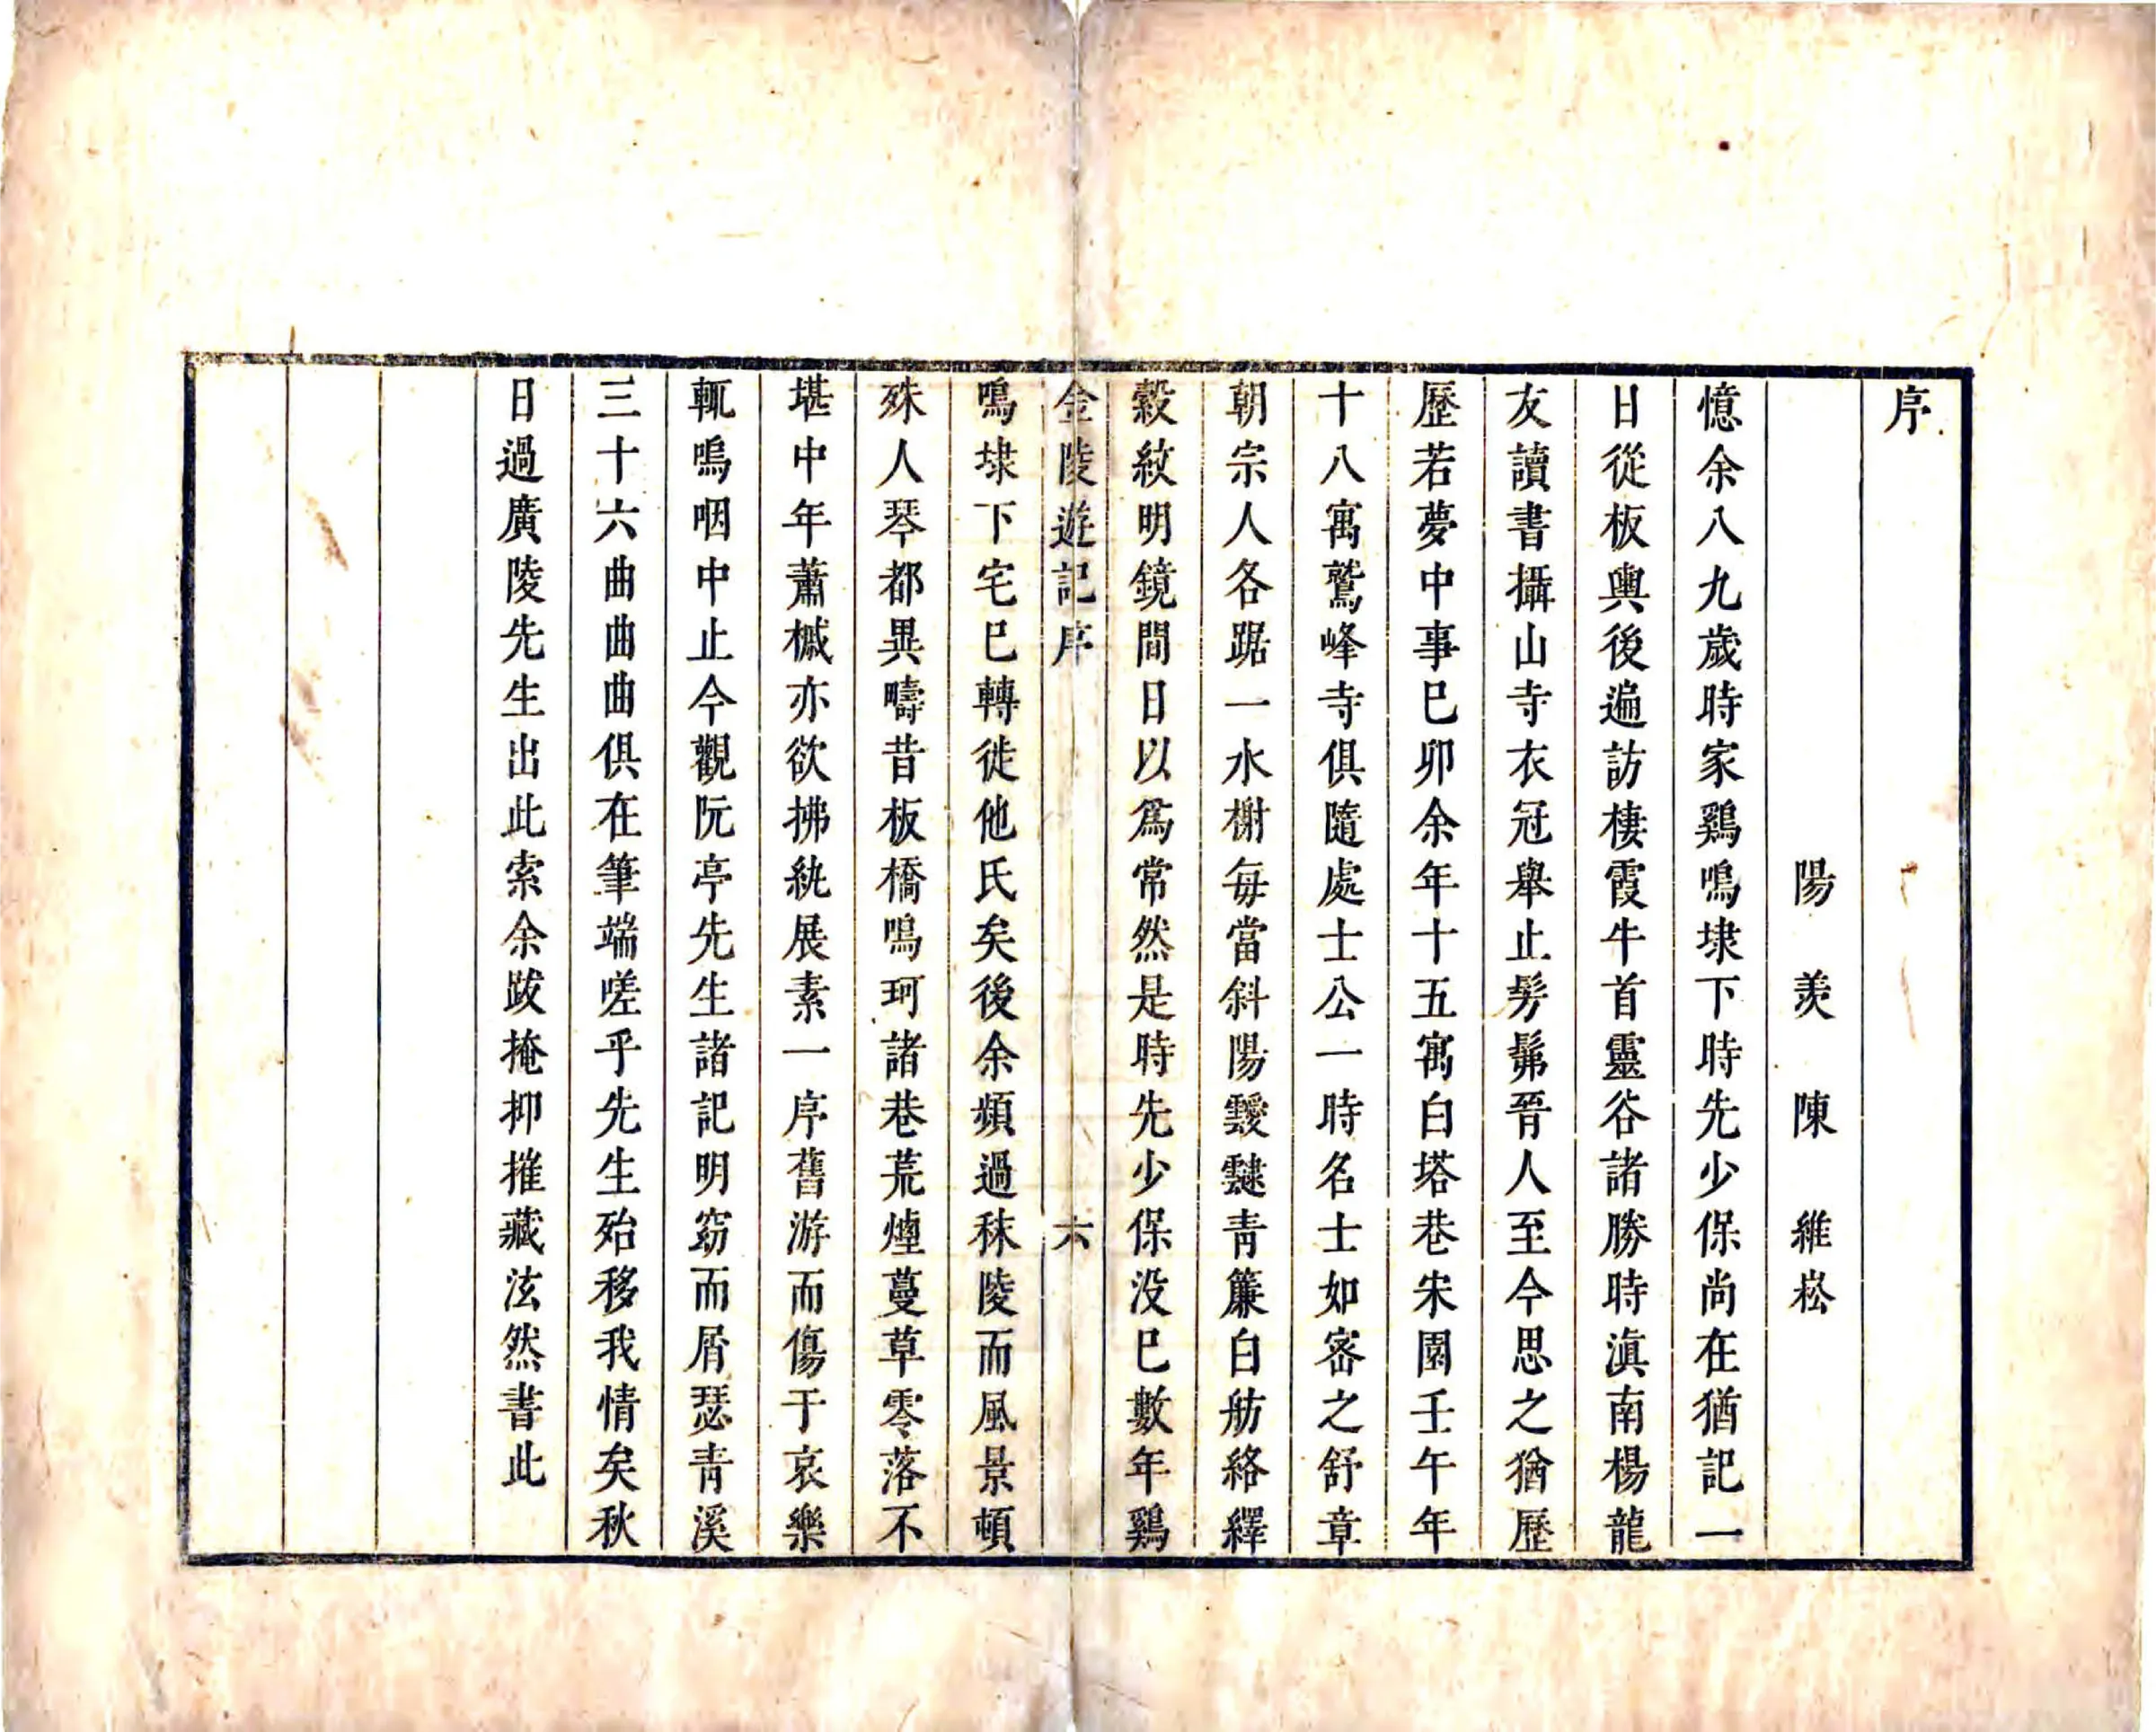 序
陽羨陳維崧
憶余八九歲時家鷄鳴埭下時先少保尚在猶記一
日從板輿後遍訪棲霞牛首靈谷諸勝時滇南楊龍
友讀書攝山寺衣冠舉止髣髴晉人至今思之猶歷
歷若夢中事巳卯余年十五寓白塔巷宋園壬午年
十八寓鷲峰寺俱隨處士公一時名士如密之舒章
朝宗人各踞一水榭每當斜陽靉靆青簾白舫絡繹
縠紋明鏡間日以爲常然是時先少保没巳數年鷄
金陵遊記序 六
鳴埭下宅巳轉徙他氏矣後余頻過秣陵而風景頓
殊人琴都異疇昔板橋鳴珂諸巷荒煙蔓草零落不
堪中年蕭槭亦欲拂紈展素一序舊游而傷于哀樂
輒嗚咽中止今觀阮亭先生諸記明窈而屑瑟青溪
三十六曲曲曲俱在筆端嗟乎先生殆移我情矣秋
日過廣陵先生出此索余跋掩抑摧藏泫然書此